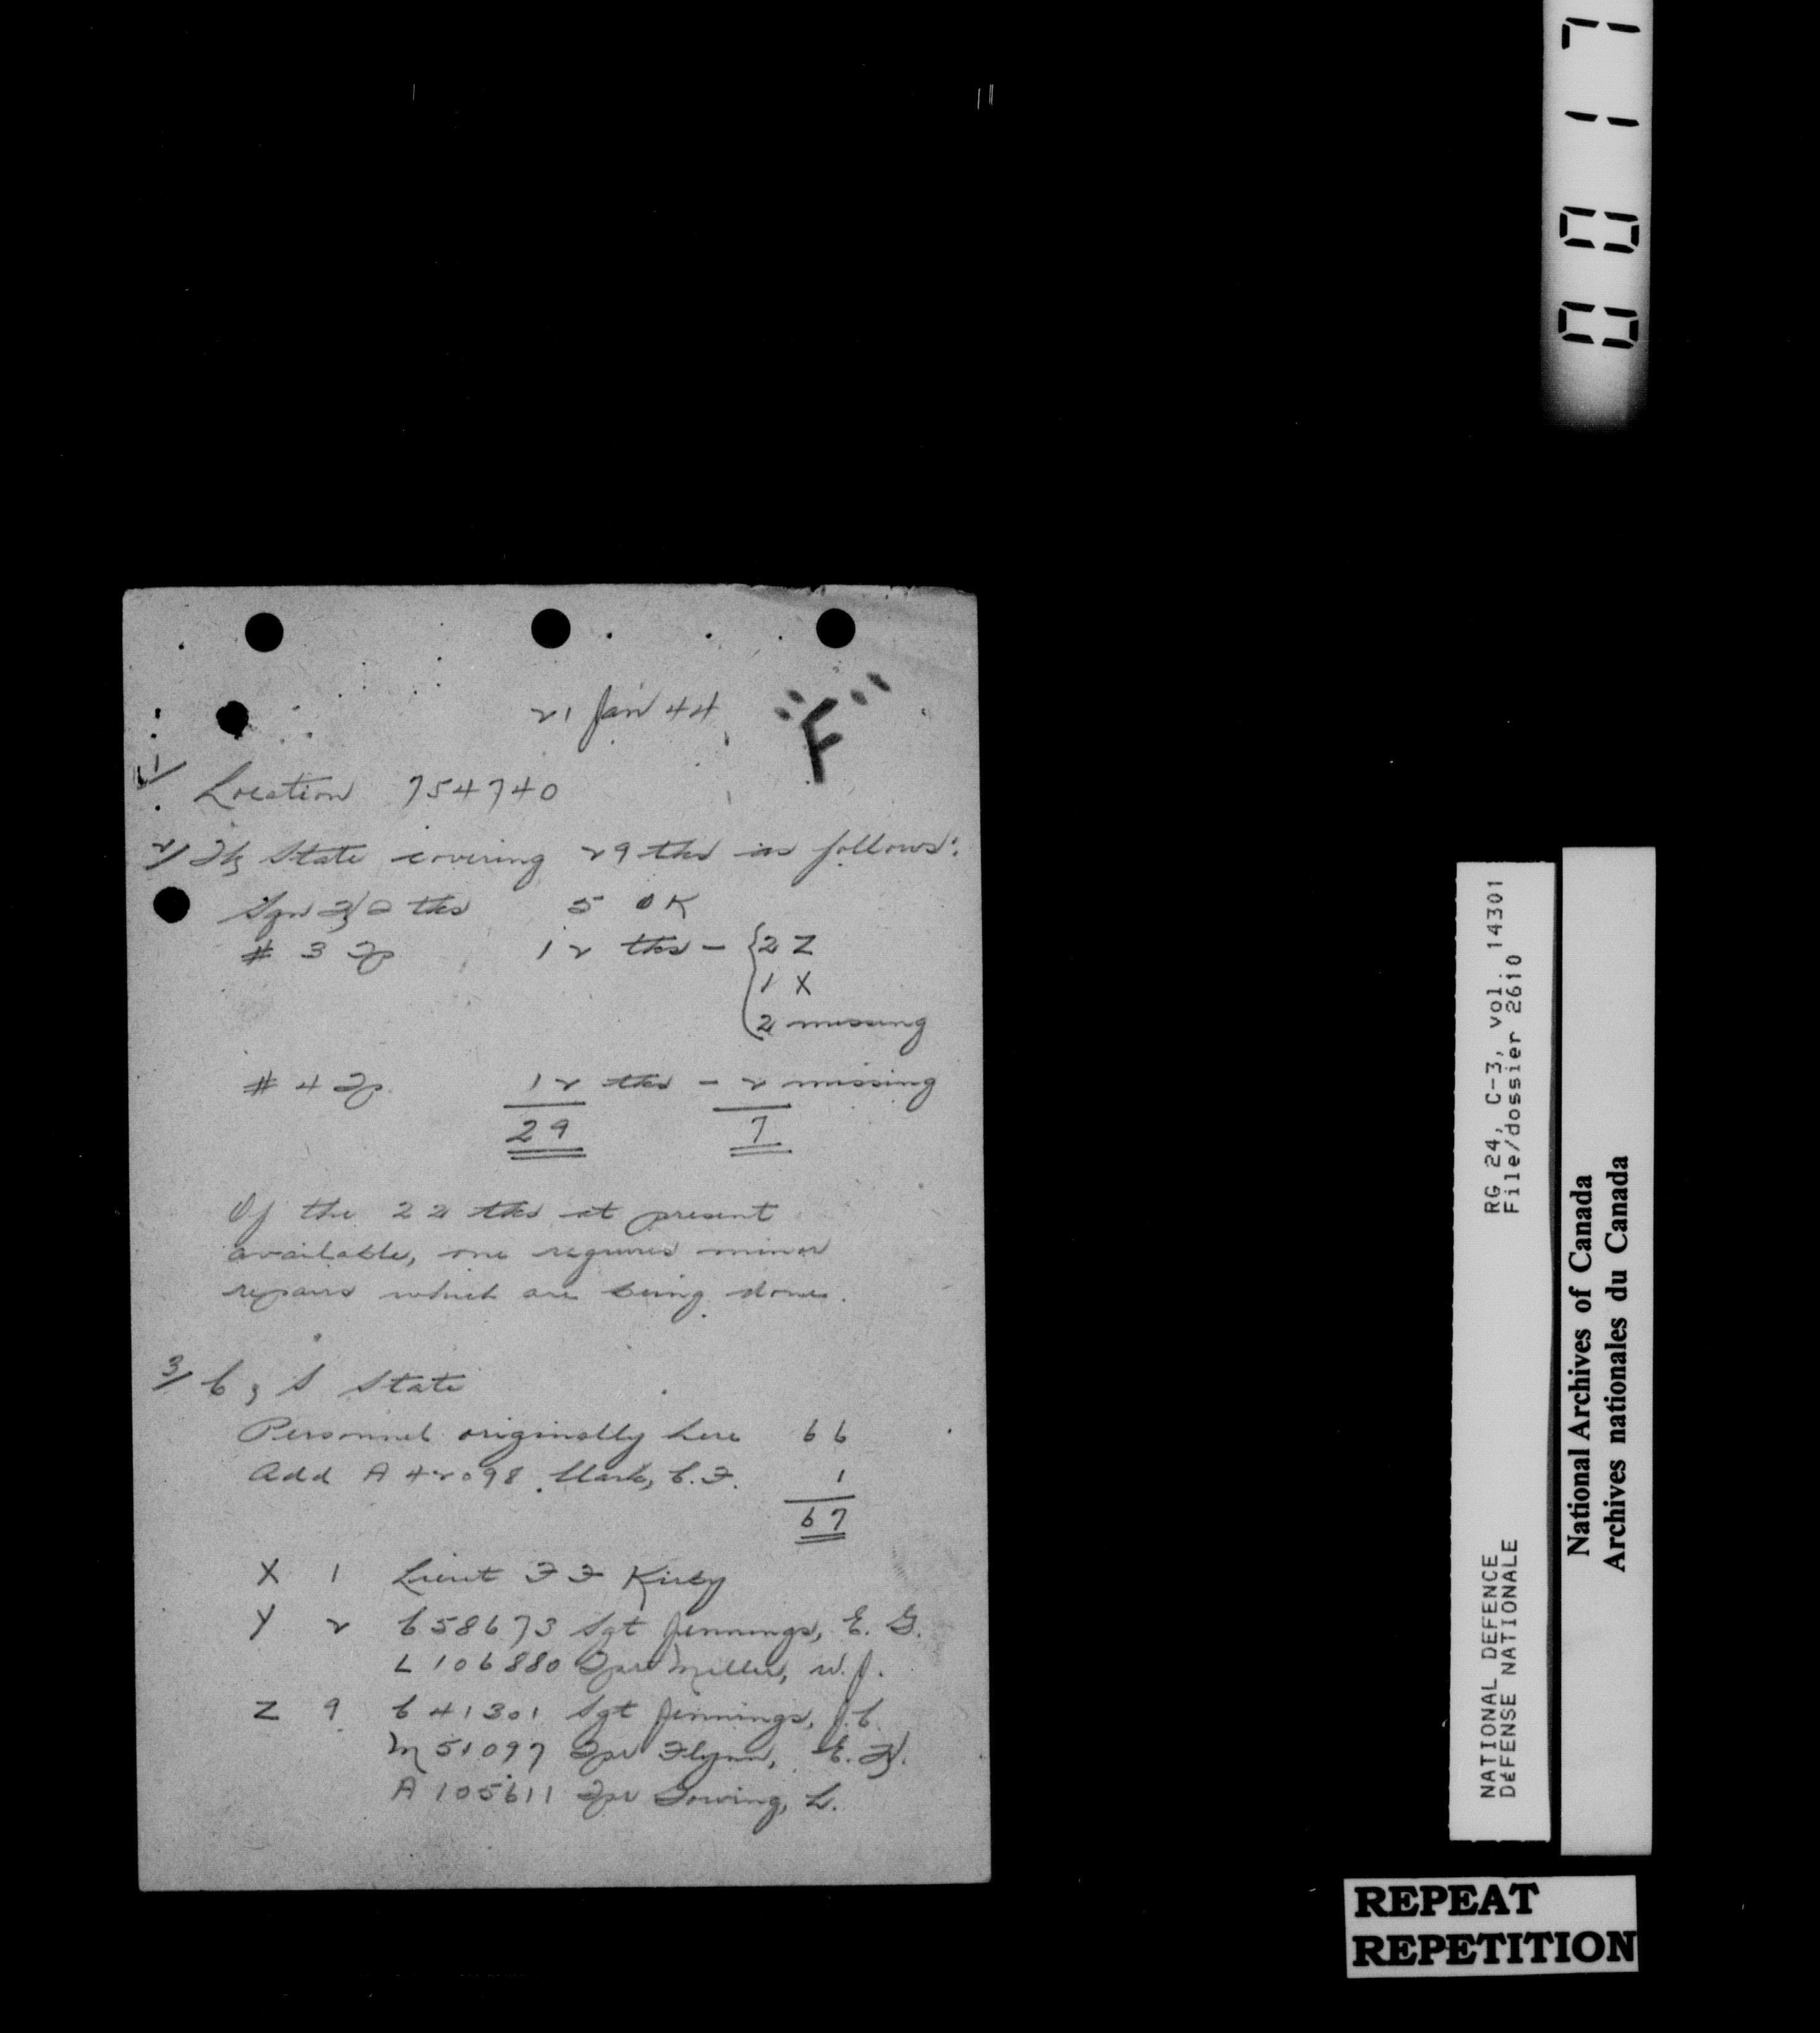 21 Jan 44
"F"
1/ Location 754740
2/ Tk State covering 29 tks is follows:
Sqn HQ tks 5 OK
# 3 Tp 12 tks - { 2 Z
1 X
2 missing
# 4 Tp. 12 tks - 2 missing
29 7
Of the 22 tks at present
available, one requires minor
repairs which are being done.
3/ C, S State
Personnel originally here 66
Add A 42098 Clark, C.F. 1
67
X 1 Lieut F F Kirby
Y 2 C58673 Sgt Jennings, E. G.
L 106880 Tpr Miller, W. J.
Z 9 C 41301 Sgt Jennings, J. C.
M 51097 Tpr Flynn, E.
A 105611 Tpr Gowing, L.
0017
RG 24, C-3, vol. 14301
File/dossier 2610
NATIONAL DEFENCE
DÉFENSE NATIONALE
National Archives of Canada
Archives nationales du Canada
REPEAT
REPETITION